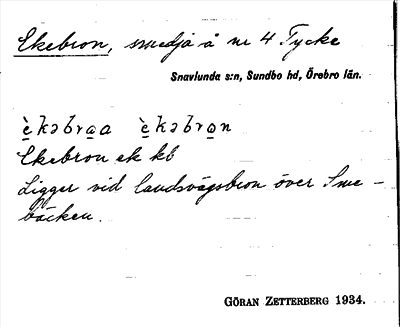 Ekebron, smedja å nr 4 Tycke
Snavlunda s:n, Sundbo hd, Örebro län.
è̠kəbra̠a è̠kəbra̠n
Ekebron ek kb
Ligger vid landsvägsbron över Sme-
bäcken.
GÖRAN ZETTERBERG 1934.